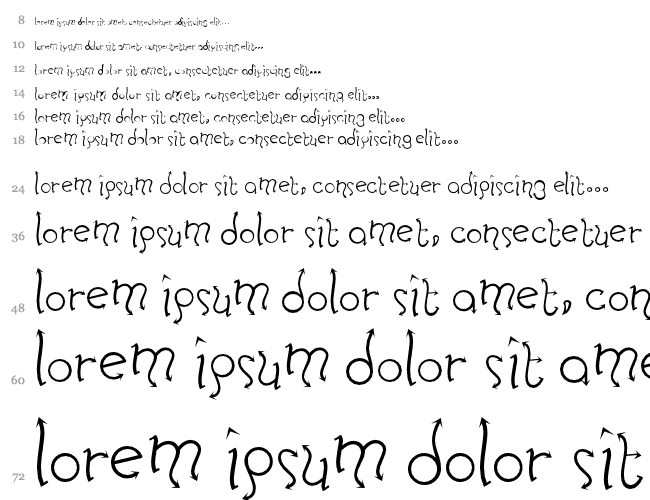 8 lorem ipsum dolor sit amet, consectetuer adipiscing elit...
10 lorem ipsum dolor sit amet, consectetuer adipiscing elit...
12 lorem ipsum dolor sit amet, consectetuer adipiscing elit...
14 lorem ipsum dolor sit amet, consectetuer adipiscing elit...
16 lorem ipsum dolor sit amet, consectetuer adipiscing elit...
18 lorem ipsum dolor sit amet, consectetuer adipiscing elit...
24 lorem ipsum dolor sit amet, consectetuer adipiscing elit...
36 lorem ipsum dolor sit amet, consectetuer
48 lorem ipsum dolor sit amet, con
60 lorem ipsum dolor sit ame
72 lorem ipsum dolor sit